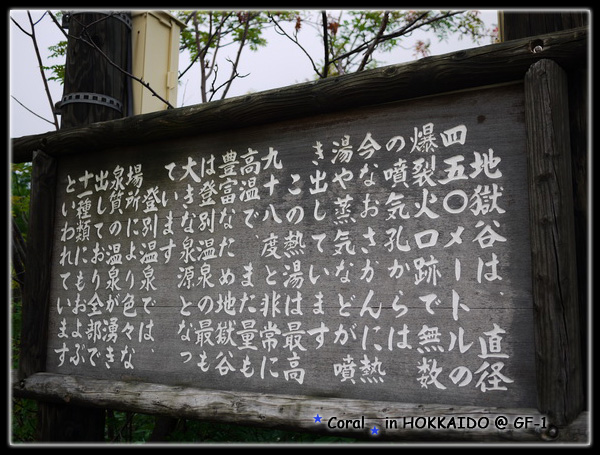 地獄谷は、直径
四五〇メートルの
爆裂火口跡で無数
の噴気孔からは
今なおさかんに熱
湯や蒸気などが噴
き出しています
この熱湯は最高
九十八度と非常に
高温でまた量も
豊富なため地獄谷
は登別温泉の最も
大きな泉源となっ
ています
登別温泉では、
場所により色々な
泉質の温泉が湧き
出しており全部で
十一種類にもおよぶ
といわれています
Coral in HOKKAIDO @ GF-1